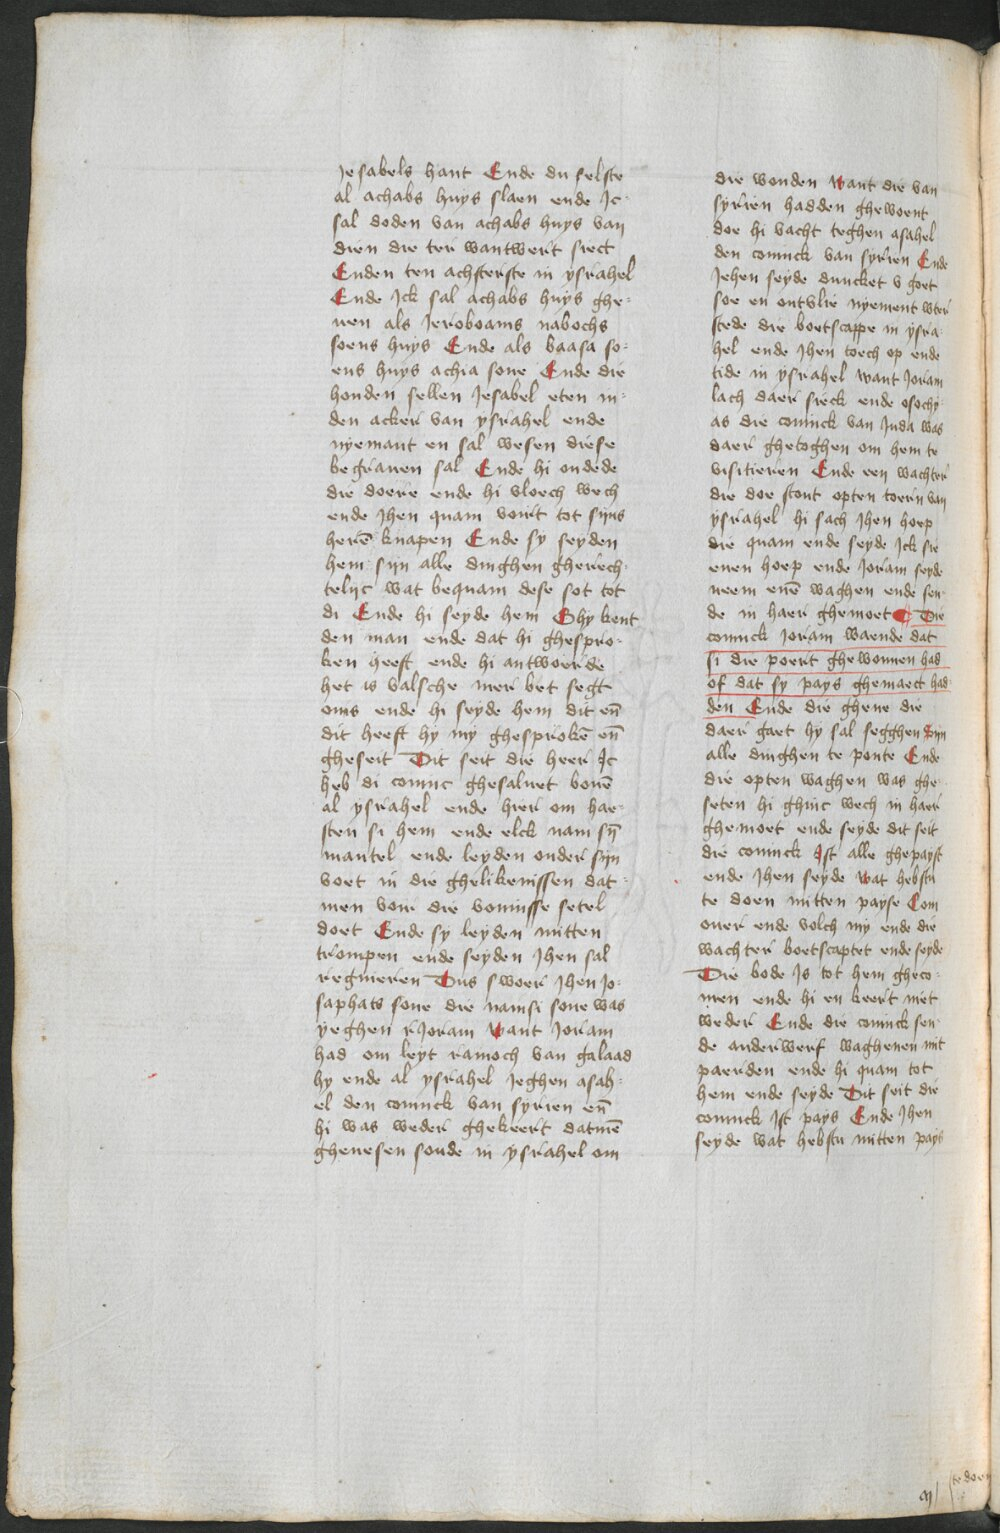 Jesabels hant Ende du selste
al achabs huys slaen ende Jc
sal doden van achabs huys van
dien die ter wantwert siect
Enden ten achsterste in ysrahel
Ende Jck sal achabs huys ghe-
uen als Jeroboams nabochs
soens huys Ende als baasa so-
ens huys achia sone Ende die
honden sellen Jesabel eten in-
den acker van ysrahel ende
nyemant en sal wesen diese
begrauen sal Ende hi ondede
die doere ende hi vloech wech
ende Jhen quam voirt tot sijns
herē knapen Ende sy seyden
hem sijn alle dinghen gherech-
telijc wat bequam dese sot tot
di Ende hi seyde hem Ghy kent
den man ende dat hi ghespro-
ken heeft ende hi antwoerde
het is valsche mer bet segt
oms ende hi seyde hem dit eñ
dit heeft hy my ghesprokē eñ
gheseit Dit seit die heer Jc
heb di coninc ghesaluet bouē
al ysrahel ende hier om hae-
sten si hem ende elck nam sȳ
mantel ende leyden onder sijn
voet in die ghelikenissen dat-
men voir die vonnisse setel
doet Ende sy leyden mitten
trompen ende seyden Jhen sal
regnieren Dus swoer Jhen Jo-
saphats sone die namsi sone was
yeghen Joram want Joram
had om leyt ramoch van galaad
hy ende al ysrahel Jeghen asah-
el den coninck van syrien eñ
hi was weder ghekeert datmē
ghenesen soude in ysrahel om
die wonden want die van
syrien hadden ghewont
doe hi vacht teghen asahel
den coninck van syrien Ende
Jehen seyde duncket v goet
soe en ontvlie nyement wter
stede die boetscappe in ysra-
hel ende Jhen toech op ende
tide in ysrahel want Joram
lach daer sieck ende osochy-
as die coninck van Juda was
daer ghetoghen om hem te
visitieren Ende een wachter
die doe stont opten toern van
ysrahel hi sach Jhen hoep
die quam ende seyde Jck sie
enen hoep ende Joram seyde
neem enē waghen ende sen-
de in haer ghemoet Die
coninck Joram waende dat
si die poert ghewonnen had
of dat sy pays ghemaect had-
den Ende die ghene die
daer gaet hy sal segghen sijn
alle dinghen te ponte Ende
die opten waghen was ghe-
seten hi ghinc wech in haer
ghemoet ende seyde dit seit
die coninck Jst alle ghepayst
ende Jhen seyde wat hebstu
te doen mitten payse Com
ouer ende volch my ende die
wachter boetscaptet ende seyde
Die bode Is tot hem gheco-
men ende hi en keert niet
weder Ende die coninck sen-
de anderwerf waghenen mit
paerden ende hi quam tot
hem ende seyde Dit seit die
coninck Jst pays Ende Jhen
seyde wat hebstu mitten pays
te doen